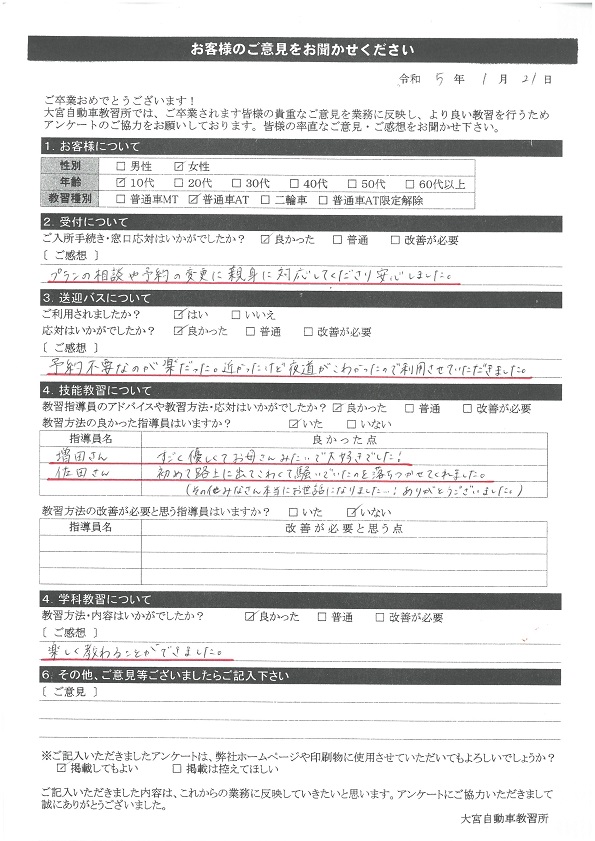 お客様のご意見をお聞かせください
令和 5 年 1 月 21 日
ご卒業おめでとうございます！
大宮自動車教習所では、ご卒業されます皆様の貴重なご意見を業務に反映し、より良い教習を行うため
アンケートのご協力をお願いしております。皆様の率直なご意見・ご感想をお聞かせ下さい。
1. お客様について
性別 □ 男性 ☑ 女性
年齢 ☑ 10代 □ 20代 □ 30代 □ 40代 □ 50代 □ 60代以上
教習種別 □ 普通車MT ☑ 普通車AT □ 二輪車 □ 普通車AT限定解除
2. 受付について
ご入所手続き・窓口応対はいかがでしたか？ ☑ 良かった □ 普通 □ 改善が必要
〔 ご感想 〕
プランの相談や予約の変更に親身に対応してくださり安心しました。
3. 送迎バスについて
ご利用されましたか？ ☑ はい □ いいえ
応対はいかがでしたか？ ☑ 良かった □ 普通 □ 改善が必要
〔 ご感想 〕
予約不要なのが楽だった。近かったけど夜道がこわかったので利用させていただきました。
4. 技能教習について
教習指導員のアドバイスや教習方法・応対はいかがでしたか？ ☑ 良かった □ 普通 □ 改善が必要
教習方法の良かった指導員はいますか？ ☑ いた □ いない
指導員名 良かった点
増田さん すごく優しくてお母さんみたいで大好きでした！
佐田さん 初めて路上に出てこわくて騒いでいたのを落ちつかせてくれました。
(その他みなさん本当にお世話になりました…！ありがとうございました。)
教習方法の改善が必要と思う指導員はいますか？ □ いた ☑ いない
指導員名 改善が必要と思う点
4. 学科教習について
教習方法・内容はいかがでしたか？ ☑ 良かった □ 普通 □ 改善が必要
〔 ご感想 〕
楽しく教わることができました。
6. その他、ご意見等ございましたらご記入下さい
〔 ご意見 〕
※ご記入いただきましたアンケートは、弊社ホームページや印刷物に使用させていただいてもよろしいでしょうか？
☑ 掲載してもよい □ 掲載は控えてほしい
ご記入いただきました内容は、これからの業務に反映していきたいと思います。アンケートにご協力いただきまして
誠にありがとうございました。
大宮自動車教習所